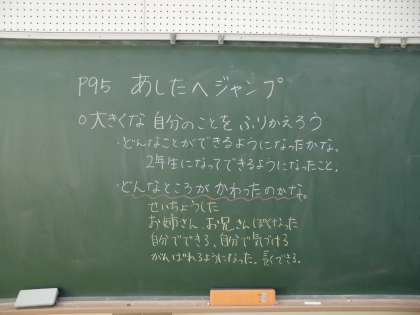 P95 あしたへジャンプ
○大きくな自分のことをふりかえろう
・どんなことができるようになったかな。
2年生になってできるようになったこと。
・どんなところがかわったのかな。
せいちょうした
お姉さん、お兄さんぽくなった
自分でできる、自分で気づける
がんばれるようになった。長くできる。